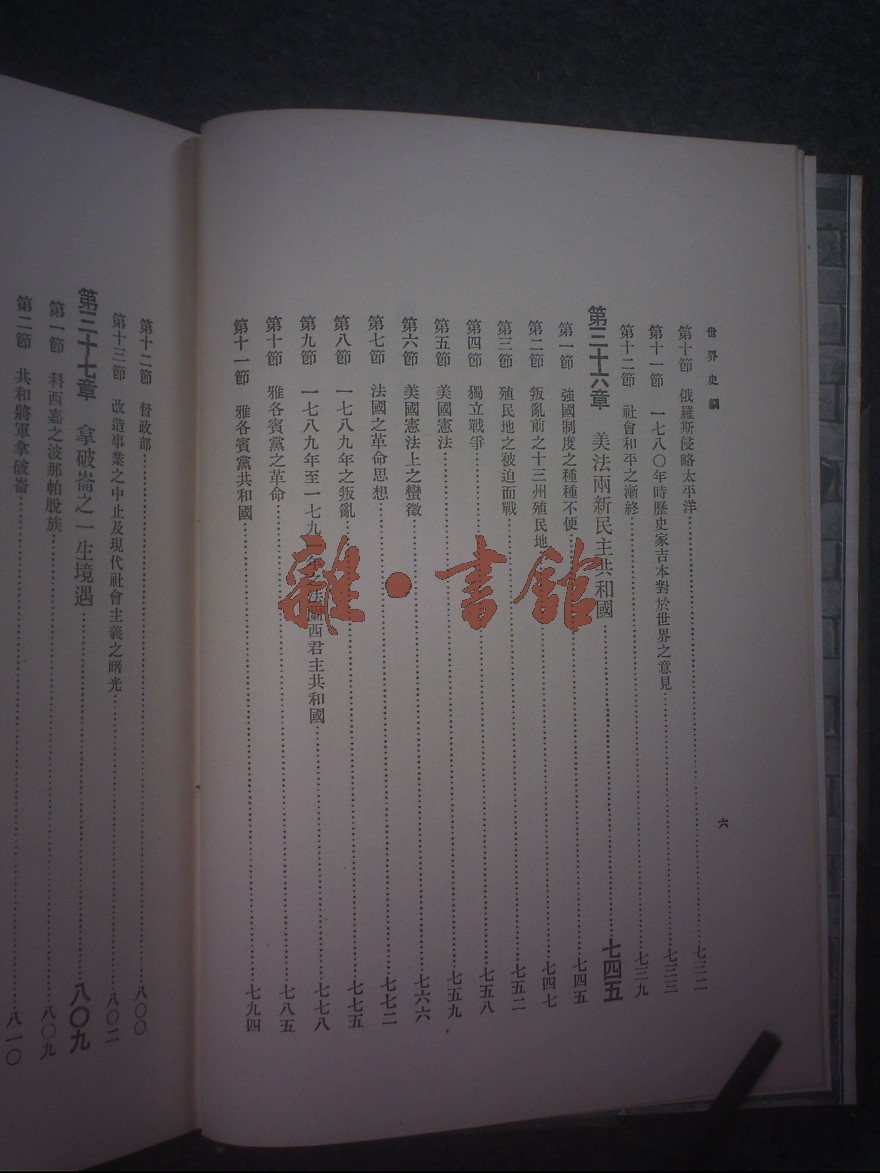 世界史綱
六
第十節　俄羅斯侵略太平洋……七三二
第十一節　一七八〇年時歷史家吉本對於世界之意見……七三三
第十二節　社會和平之漸終……七三九
第三十六章　美法兩新民主共和國……七四五
第一節　強國制度之種種不便……七四五
第二節　叛亂前之十三州殖民地……七四七
第三節　殖民地之被迫而戰……七五二
第四節　獨立戰爭……七五八
第五節　美國憲法……七五九
第六節　美國憲法上之蠻徵……七六六
第七節　法國之革命思想……七七二
第八節　一七八九年之叛亂……七七五
第九節　一七八九年至一七九一年之法蘭西君主共和國……七七八
第十節　雅各賓黨之革命……七八五
第十一節　雅各賓黨共和國……七九四
第十二節　督政部……八〇〇
第十三節　改造事業之中止及現代社會主義之曙光……八〇二
第三十七章　拿破崙之一生境遇……八〇九
第一節　科西嘉之波那帕脫族……八〇九
第二節　共和將軍拿破崙……八一〇
雜·書館